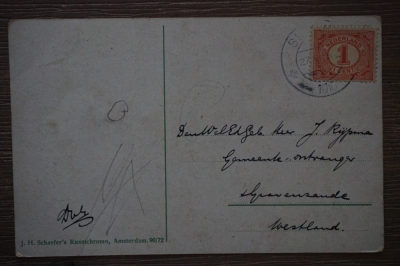 NEDERLAND
1
Den WelEdGeb. Heer J. Rijpma
Gemeente-ontvanger
's Gravenzande
Westland.
J. H. Schaefer's Kunstchromo, Amsterdam 90/72